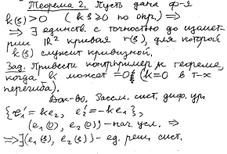 Теорема 2. Пусть дана ф-я
k(s)>0 (k(s)≥0 по опр.) ⇒
⇒ ∃ единств. с точностью до изомет-
рии ℝ² кривая r(s), для которой
k(s) служит кривизной.
Зад. Привести контрпример к теореме,
когда k может =0 (k=0 в т-х
перегиба).
Док-во. Рассм. сист. диф. ур.
{e₁' = ke₂, e₂' = -ke₁},
(e₁(0), e₂(0)) - нач. усл. ⇒
⇒ ∃(e₁(s), e₂(s)) - ед. реш. сист.